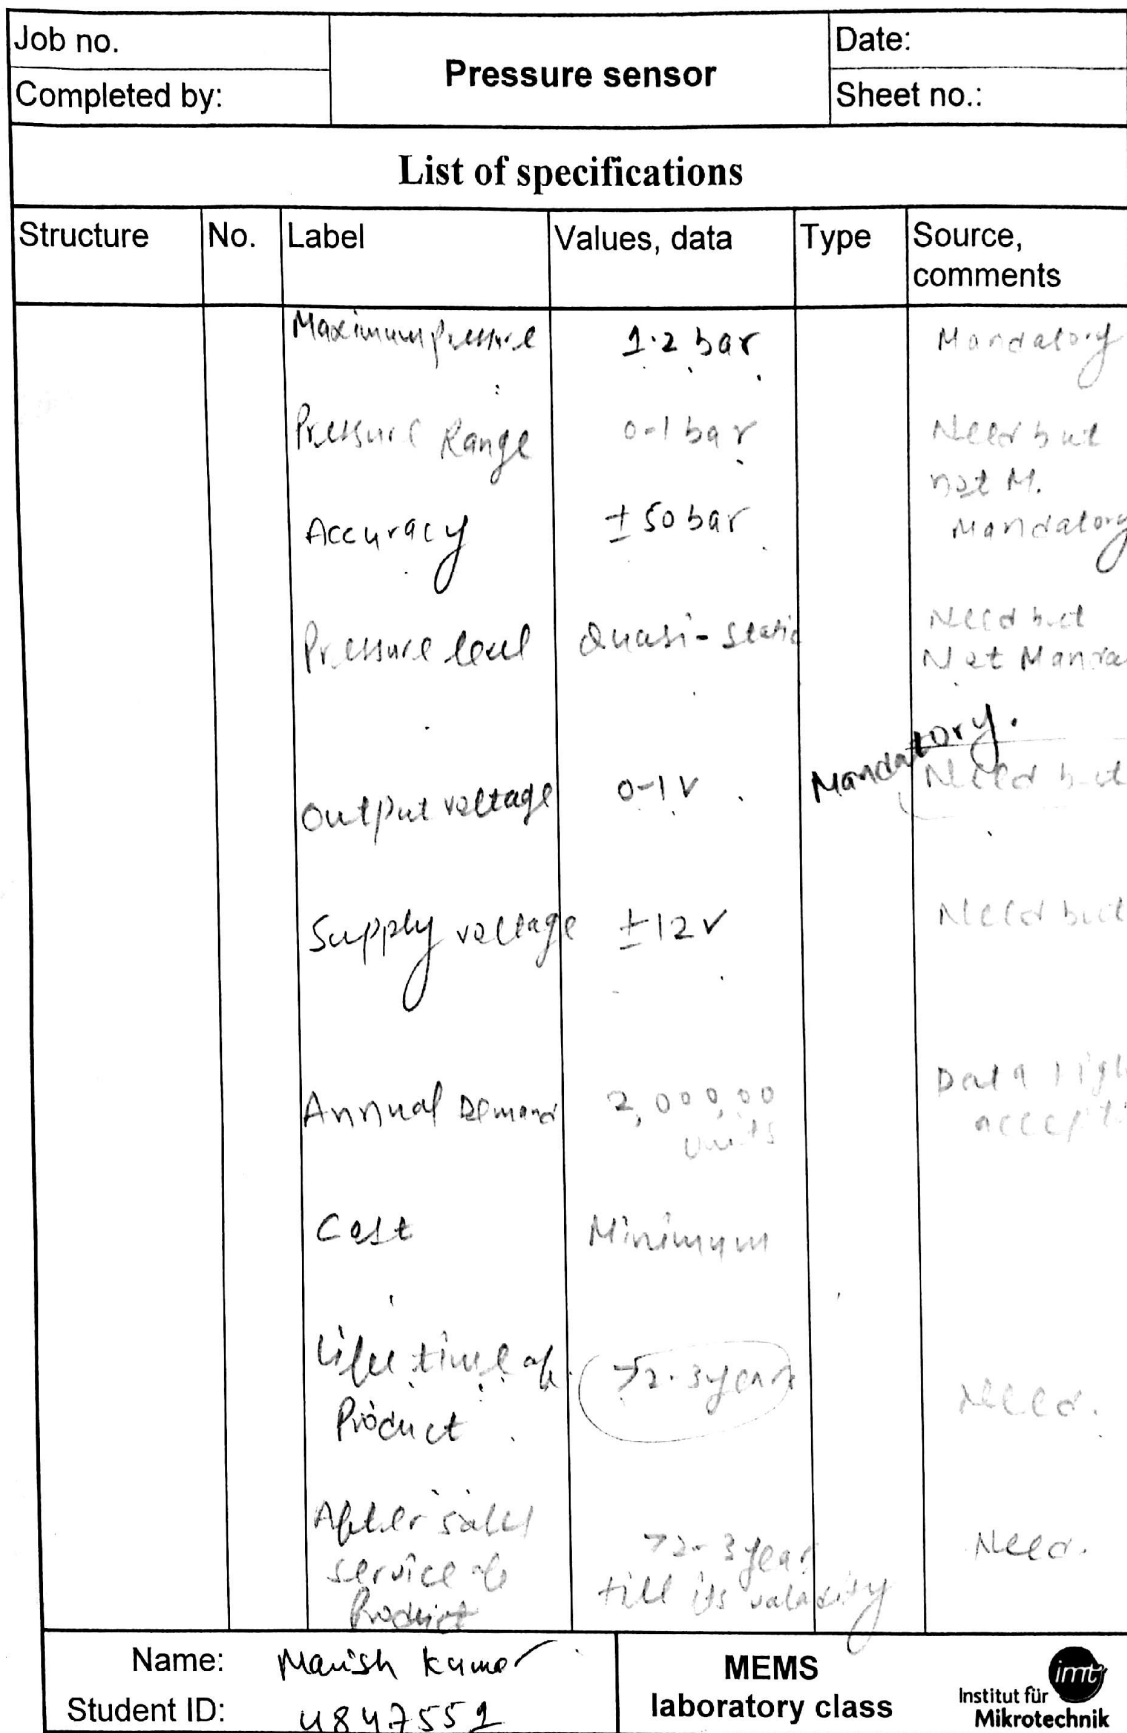 Job no.
Pressure sensor
Date:
Completed by:
Sheet no.:
List of specifications
Structure No. Label Values, data Type Source,
comments
Maximum pressure 1.2 bar Mandatory
Pressure Range 0-1 bar Need but
not M.
Accuracy ± 50 bar Mandatory
Pressure level Quasi-static Need but
Not Manda
Mandatory.
Output voltage 0-1 V Need but
Supply voltage ±12 V Need but
Annual Demand 2,000,00
units
accept
Cost Minimum
Life time of >2-3 year
Product Need.
After sales
service of >2-3 year Need.
Product till its
Name: Manish Kumar
Student ID: 4847551
MEMS
laboratory class
imt
Institut für
Mikrotechnik